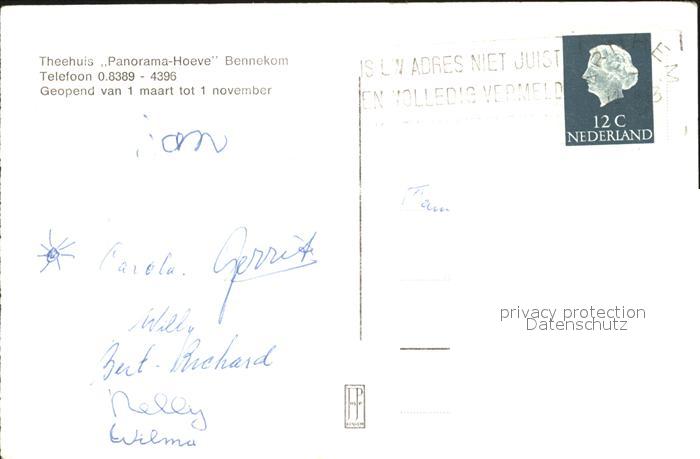 Theehuis „Panorama-Hoeve” Bennekom
Telefoon 0.8389 - 4396
Geopend van 1 maart tot 1 november
IS UW ADRES NIET JUIST
EN VOLLEDIG VERMELD
12 C
NEDERLAND
Jan
Fam
Carola. Gerrit
Willy
Bert - Richard
Nelly
Wilma
privacy protection
Datenschutz